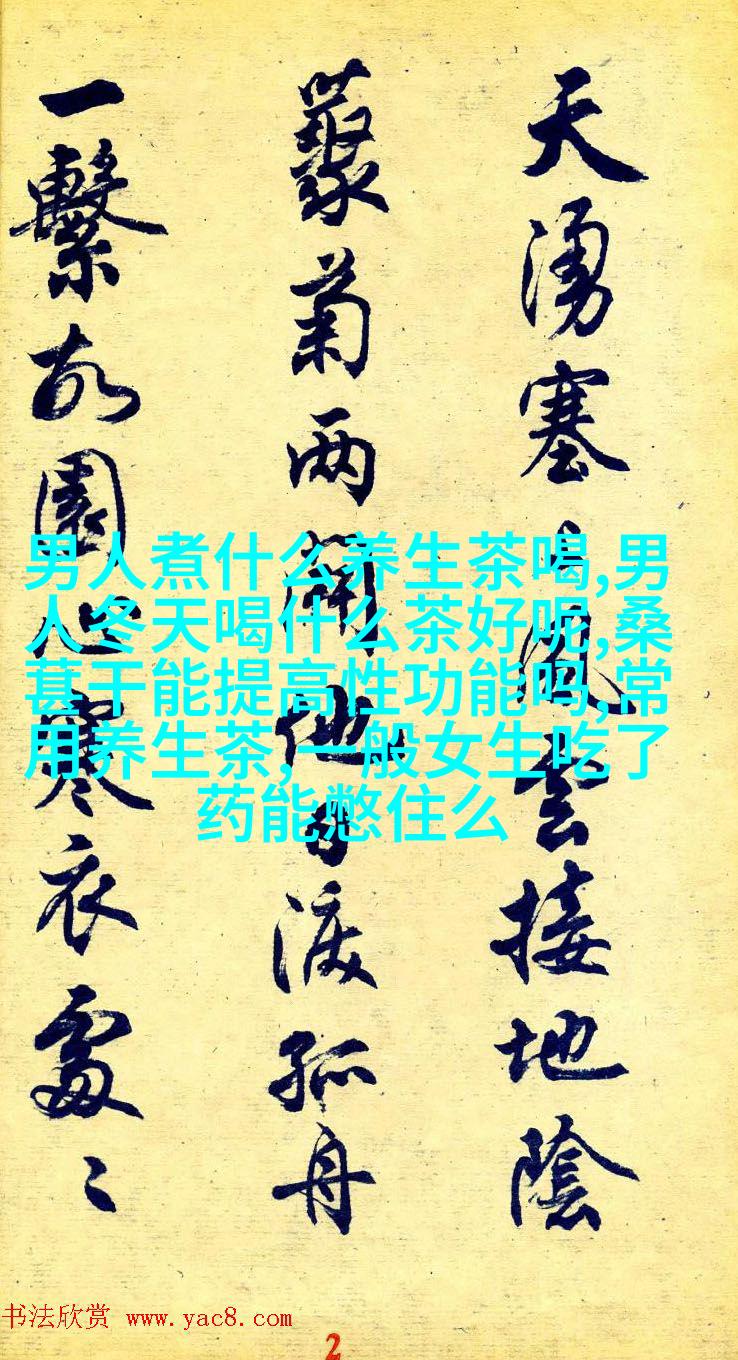 天湧塞上風雲接地陰
叢菊两開他日涙孤舟
一繫故園心寒衣處〻
男人煮什么养生茶喝,男
人冬天喝什么茶好呢,桑
葚干能提高性功能吗,常
用养生茶,一般女生吃了
药能憋住么
书法欣赏 www.yac8.com
2